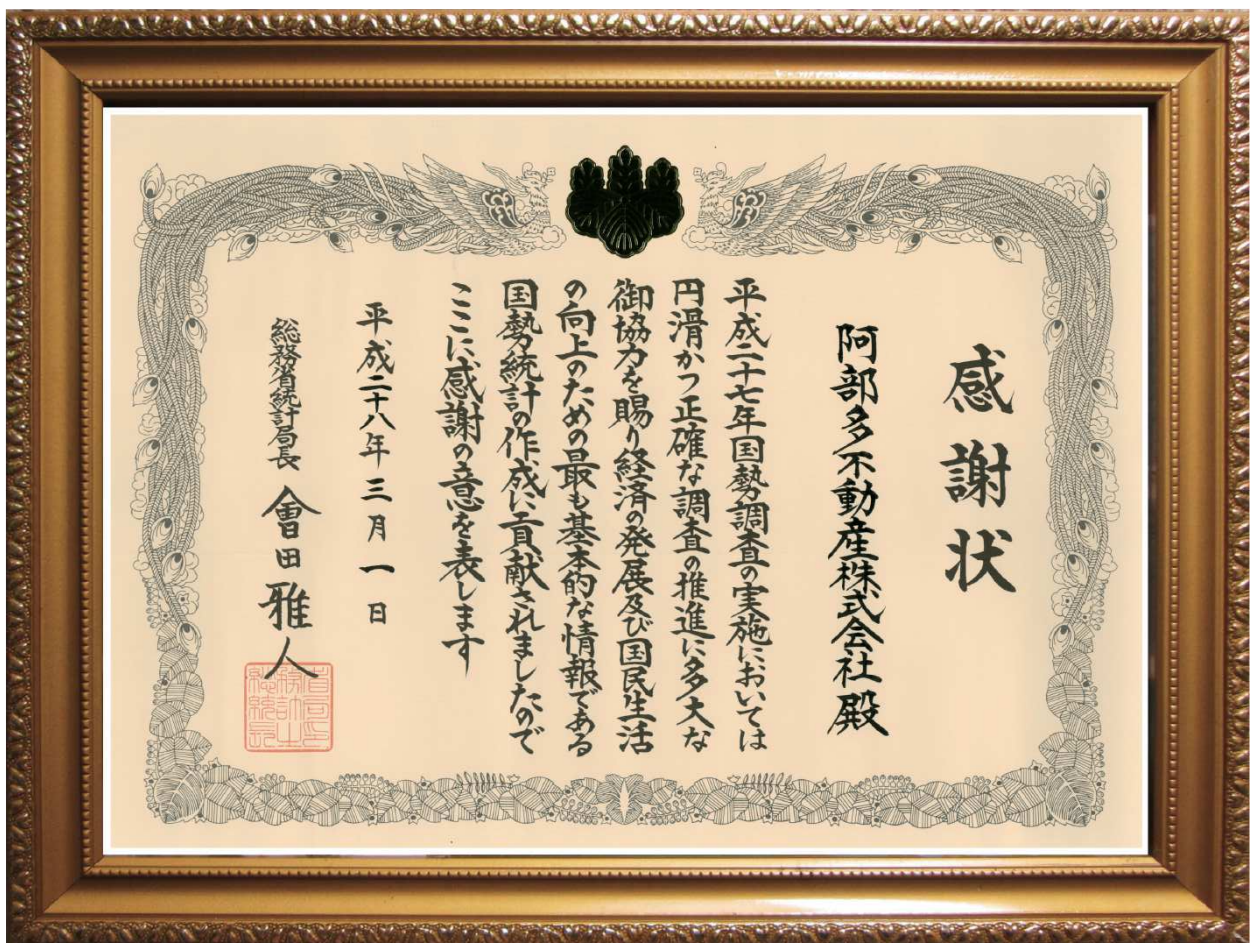 感謝状
阿部多不動産株式会社殿
平成二十七年国勢調査の実施においては
円滑かつ正確な調査の推進に多大な
御協力を賜り経済の発展及び国民生活
の向上のための最も基本的な情報である
国勢統計の作成に貢献されましたので
ここに感謝の意を表します
平成二十八年三月一日
総務省統計局長 會田雅人